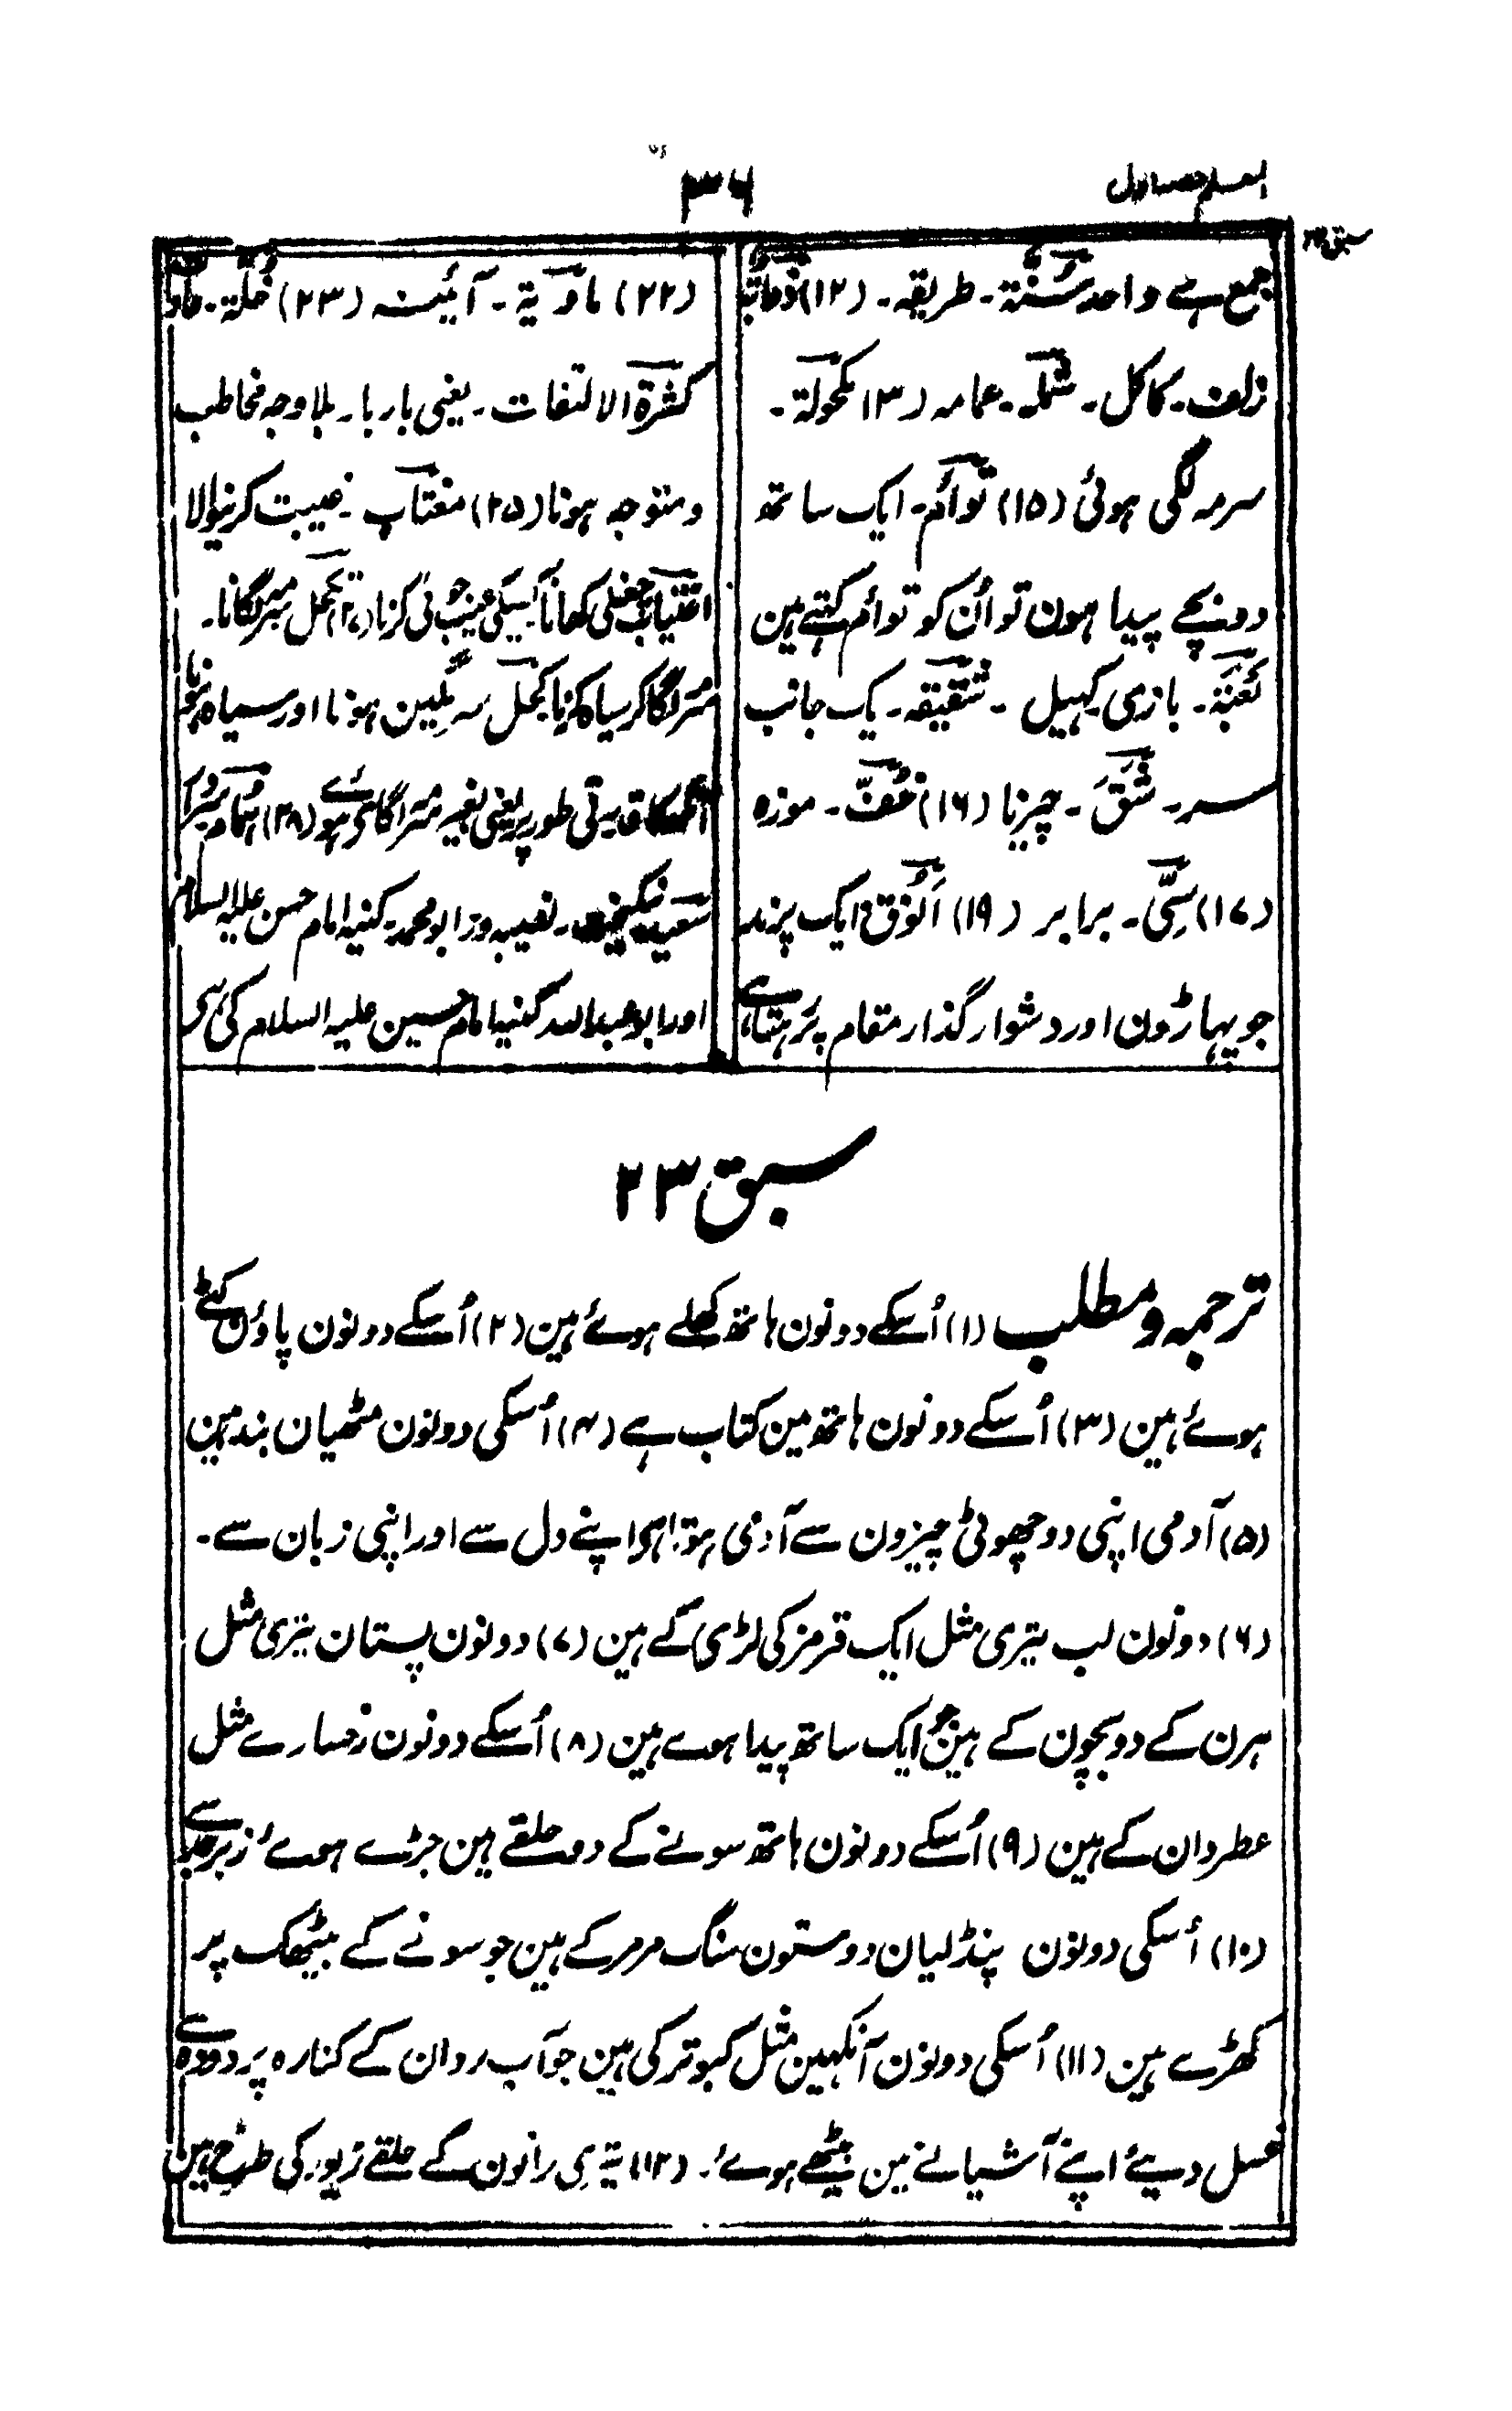 المعلم حصہ اول
۳۶
سبق ۲۳
جمع ہے واحد سُنَّۃ۔ طریقہ۔ (۱۲) ذُؤَابَۃ
زلف۔ کاکل۔ شملہ۔ عمامہ (۱۳) مکحولۃ۔
سرمہ لگی ہوئی (۱۵) تَوأَم۔ ایک ساتھ
دو بچے پیدا ہون تو اُن کو توأم کہتے ہین
لُعْبَۃ۔ بازی کہیل ۔ شقیقہ۔ یک جانب
سر۔ شَقّ۔ چیرنا (۱۶) خُفّ۔ موزہ
(۱۷) سِیّ۔ برابر (۱۹) اَنُوق ایک پرند
جو پہاڑون اور دشوار گذار مقام پر رہتا ہے
(۲۲) ماویۃ۔ آئینہ (۲۳) خُلّۃ۔
کثرۃ الالتفات۔ یعنی بار بار۔ بلا وجہ مخاطب
و متوجہ ہونا (۲۵) مغتاب۔ غیبت کرنیوالا
اغتیاب چغلی کھانا کسیکی عیب جوئی کرنا تکحل سرمہ لگانا۔
سرمہ لگا کر سیاہ کرنا کحل سرمگین ہونا اور سیاہ ہونا
قدرتی طور پر یعنی بغیر سرمہ لگائے ہو (۲۸)
سعید نیکبخت۔ نصیبہ ور ابو محمد۔ کنیہ امام حسن علیہ السلام
اور ابو عبداللہ کنیہ امام حسین علیہ السلام کی ہی
سبق ۲۳
ترجمہ و مطلب (۱) اُسکے دونون ہاتھ کھلے ہوئے ہین (۲) اُسکے دونون پاؤن کٹے
ہوئے ہین (۳) اُسکے دونون ہاتھ مین کتاب ہے (۴) اُسکی دونون مٹھیان بند ہین
(۵) آدمی اپنی دو چھوٹی چیزون سے آدمی ہوتا ہی اپنے دل سے اور اپنی زبان سے۔
(۶) دونون لب تیری مثل ایک قرمز کی لڑی کے ہین (۷) دونون پستان تیری مثل
ہرن کے دو بچون کے ہین جو ایک ساتھ پیدا ہوے ہین (۸) اُسکے دونون رخسارے مثل
عطردان کے ہین (۹) اُسکے دونون ہاتھ سونے کے دو حلقے ہین جڑے ہوئے زبرجد سے
(۱۰) اُسکی دونون پنڈلیان دو ستون سنگ مرمر کے ہین جو سونے کے بیٹھک پر
کھڑے ہین (۱۱) اُسکی دونون آنکہین مثل کبوتر کی ہین جو آب روان کے کنارہ پر دودہ سے
غسل دیئے اپنے آشیانے مین بیٹھے ہوئے۔ (۱۲) تیری رانون کے حلقے زیور کی طرح ہین